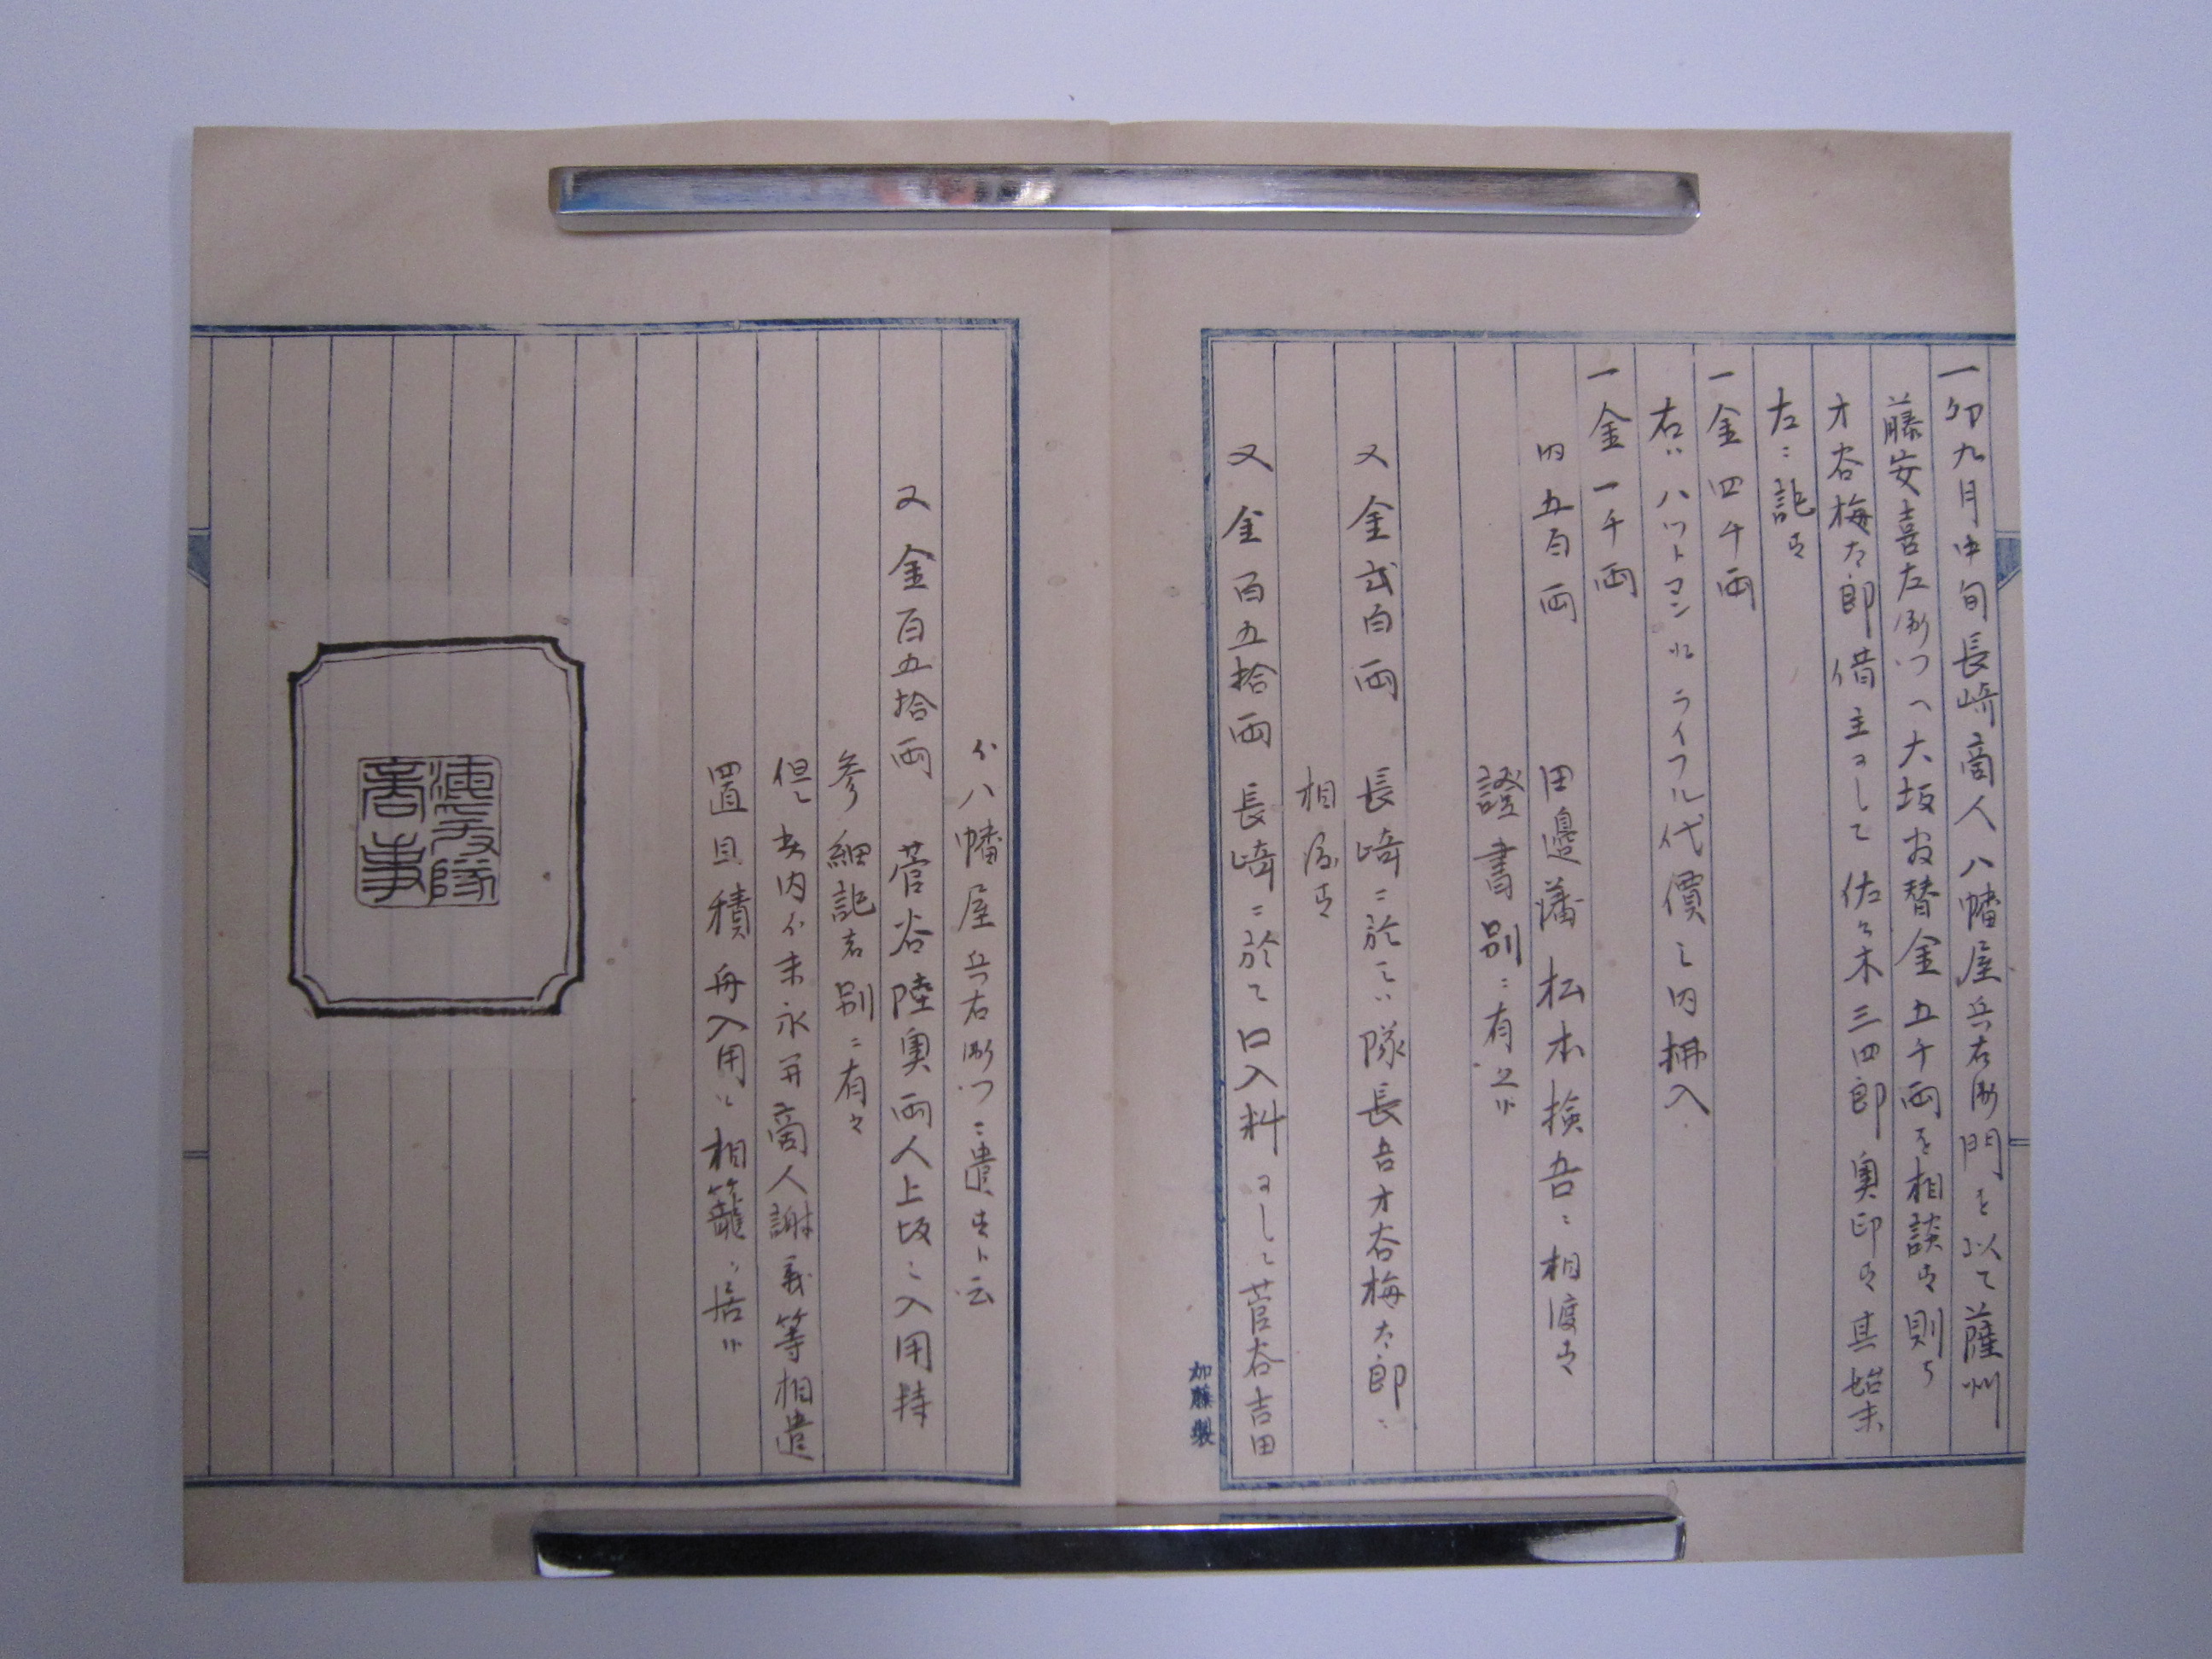 一卯九月中旬長崎商人八幡屋兵右衛門を以て薩州
藤安喜左衛门へ大坂為替金五千両を相談ス則ち
才谷梅太郎借主ニして佐々木三四郎奥印ス其始末
左ニ記ス
一金四千両
右ハハットマンよりライフル代價之内拂入
一金一千両
内五百両 田邊藩松本検吾ニ相渡ス
證書別ニ有之候
又金弐百両 長崎ニ於てハ隊長吾才谷梅太郎ニ
相渡ス
又金百五拾両 長崎ニ於て口入料ニして菅谷吉田
八幡屋兵右衛门ニ遣スト云
又金百五拾両 菅谷陸奥両人上坂之入用持
参細記者別ニ有々
但し 内 末永 商人謝義等相遣
置且積舟入用も相籠り居候
海援隊
書事
加藤製